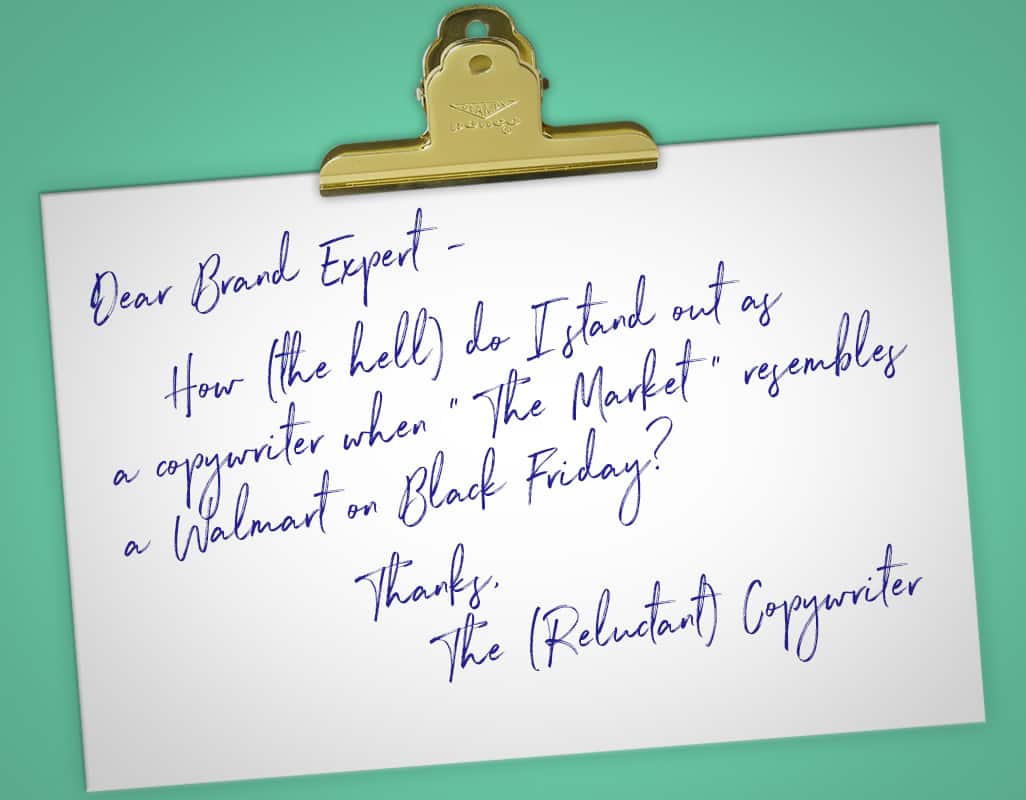 Dear Brand Expert -
How (the hell) do I stand out as
a copywriter when "The Market" resembles
a Walmart on Black Friday?
Thanks.
The (Reluctant) Copywriter